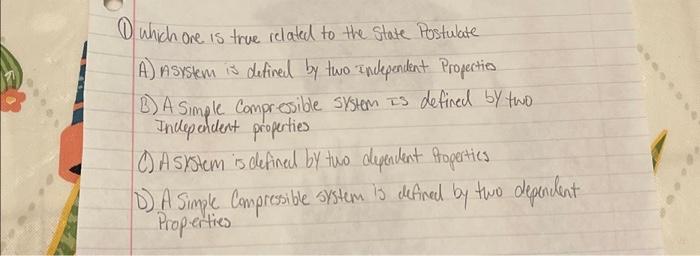 ① Which one is true related to the State Postulate
A) A system is defined by two independent Properties
B) A Simple Compressible system is defined by two
Independent properties
C) A system is defined by two dependent Properties
D) A Simple Compressible system is defined by two dependent
Properties